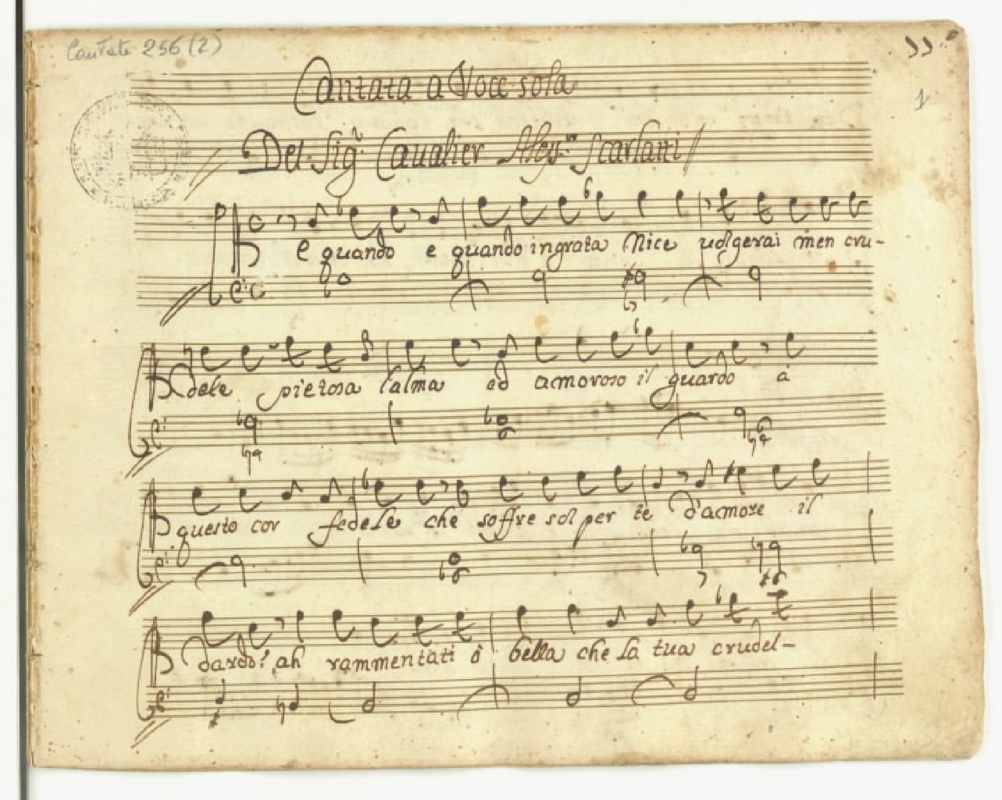 Cantate 256 (2)
1
Cantata a Voce sola
Del Sigr. Cavalier Scarlatti
E quando e quando ingrata Nice volgerai men cru-
dele pietosa l'alma ed amoroso il guardo a
questo cor fedele che soffre sol per te d'amore il
dardo? ah rammentati ò bella che la tua crudel-